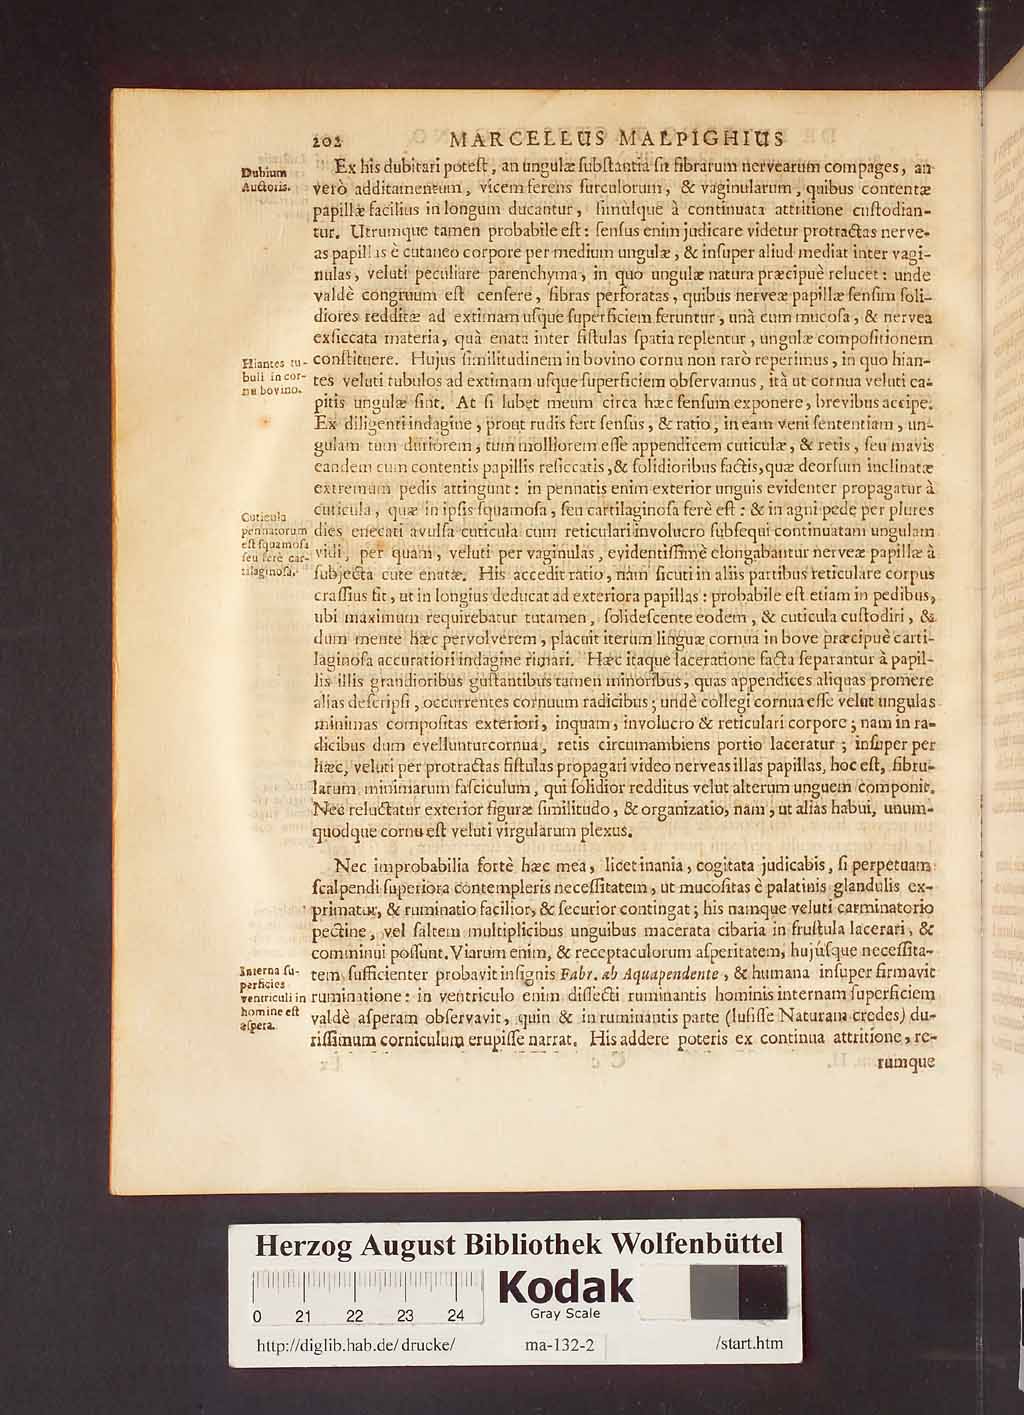 202 MARCELLUS MALPIGHIUS
Dubium
Auctoris.
Ex his dubitari poteſt, an ungulæ ſubſtantia ſit fibrarum nervearum compages, an
verò additamentum, vicem ferens ſurculorum, & vaginularum, quibus contentæ
papillæ facilius in longum ducantur, ſimúlque à continuata attritione cuſtodian-
tur. Utrumque tamen probabile eſt: ſenſus enim judicare videtur protractas nerve-
as papillas è cutaneo corpore per medium ungulæ, & inſuper aliud mediat inter vagi-
nulas, veluti peculiare parenchyma, in quo ungulæ natura præcipuè relucet: unde
valdè congruum eſt cenſere, fibras perforatas, quibus nerveæ papillæ ſenſim ſoli-
diores redditæ ad extimam uſque ſuperficiem feruntur, unà cum mucoſa, & nervea
exſiccata materia, quâ enata inter fiſtulas ſpatia replentur, ungulæ compoſitionem
Hiantes tu-
buli in cor-
nu bovino.
conſtituere. Hujus ſimilitudinem in bovino cornu non rarò reperimus, in quo hian-
tes veluti tubulos ad extimam uſque ſuperficiem obſervamus, itâ ut cornua veluti ca-
pitis ungulæ ſint. At ſi lubet meum circa hæc ſenſum exponere, brevibus accipe.
Ex diligenti indagine, prout rudis fert ſenſus, & ratio, in eam veni ſententiam, un-
gulam tum duriorem, tum molliorem eſſe appendicem cuticulæ, & retis, ſeu mavis
eandem cum contentis papillis reſiccatis, & ſolidioribus factis, quæ deorſum inclinatæ
extremum pedis attingunt: in pennatis enim exterior unguis evidenter propagatur à
Cuticula
pennatorum
eſt ſquamoſa
ſeu ferè car-
tilaginoſa.
cuticula, quæ in ipſis ſquamoſa, ſeu cartilaginoſa ferè eſt: & in agni pede per plures
dies enecati avulſa cuticula cum reticulari involucro ſubſequi continuatam ungulam
vidi, per quam, veluti per vaginulas, evidentiſſimè elongabantur nerveæ papillæ à
ſubjecta cute enatæ. His accedit ratio, nam ſicuti in aliis partibus reticulare corpus
craſſius fit, ut in longius deducat ad exteriora papillas: probabile eſt etiam in pedibus,
ubi maximum requirebatur tutamen, ſolideſcente eodem, & cuticula cuſtodiri, &
dum mente hæc pervolverem, placuit iterum linguæ cornua in bove præcipuè carti-
laginoſa accuratiori indagine rimari. Hæc itaque laceratione facta ſeparantur à papil-
lis illis grandioribus guſtantibus tamen minoribus, quas appendices aliquas promere
alias deſcripſi, occurrentes cornuum radicibus; undè collegi cornua eſſe velut ungulas
minimas compoſitas exteriori, inquam, involucro & reticulari corpore; nam in ra-
dicibus dum evelluntur cornua, retis circumambiens portio laceratur; inſuper per
hæc, veluti per protractas fiſtulas propagari video nerveas illas papillas, hoc eſt, fibru-
larum minimarum faſciculum, qui ſolidior redditus velut alterum unguem componit.
Nec reluctatur exterior figuræ ſimilitudo, & organizatio, nam, ut alias habui, unum-
quodque cornu eſt veluti virgularum plexus.
Nec improbabilia fortè hæc mea, licet inania, cogitata judicabis, ſi perpetuam
ſcalpendi ſuperiora contempleris neceſſitatem, ut mucoſitas è palatinis glandulis ex-
primatur, & ruminatio facilior, & ſecurior contingat; his namque veluti carminatorio
pectine, vel ſaltem multiplicibus unguibus macerata cibaria in fruſtula lacerari, &
comminui poſſunt. Viarum enim, & receptaculorum aſperitatem, hujúſque neceſſita-
Interna ſu-
perficies
ventriculi in
homine eſt
aſpera.
tem ſufficienter probavit inſignis Fabr. ab Aquapendente, & humana inſuper firmavit
ruminatione: in ventriculo enim diſſecti ruminantis hominis internam ſuperficiem
valdè aſperam obſervavit, quin & in ruminantis parte (luſiſſe Naturam credes) du-
riſſimum corniculum erupiſſe narrat. His addere poteris ex continua attritione, re-
rumque
Herzog August Bibliothek Wolfenbüttel
0 21 22 23 24
Kodak
Gray Scale
http://diglib.hab.de/drucke/ ma-132-2 /start.htm